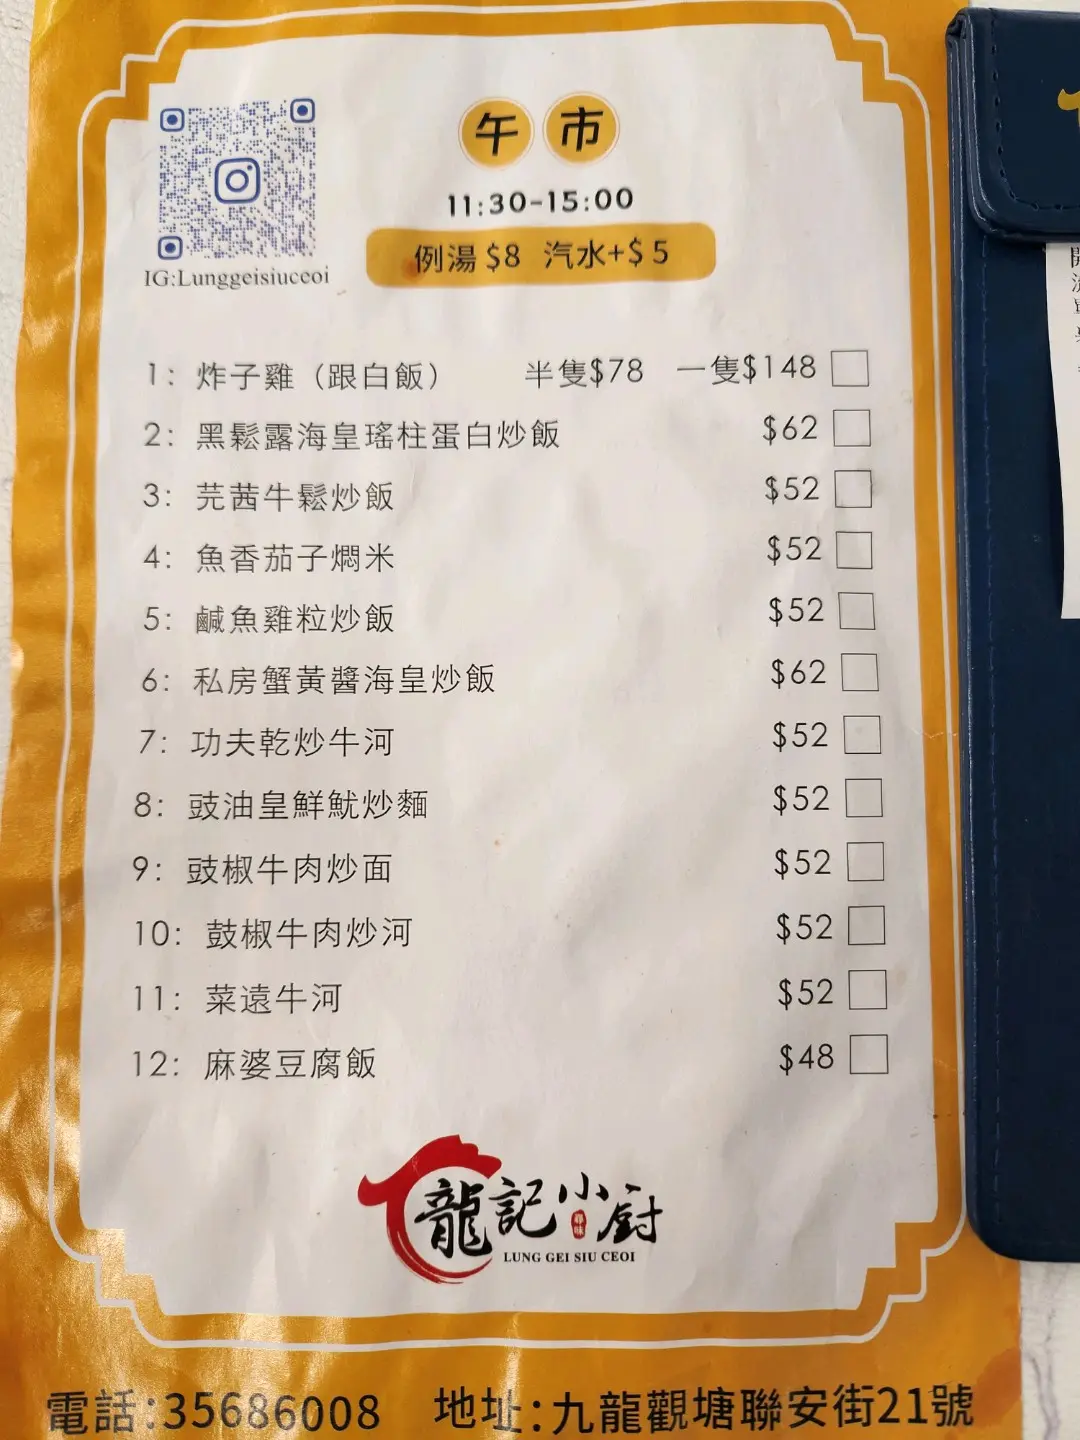 午市
11:30-15:00
例湯$8 汽水+$5
IG:Lunggeisiuceoi
1: 炸子雞（跟白飯） 半隻$78 一隻$148
2: 黑鬆露海皇瑤柱蛋白炒飯 $62
3: 芫茜牛鬆炒飯 $52
4: 魚香茄子燜米 $52
5: 鹹魚雞粒炒飯 $52
6: 私房蟹黃醬海皇炒飯 $62
7: 功夫乾炒牛河 $52
8: 豉油皇鮮魷炒麵 $52
9: 豉椒牛肉炒面 $52
10: 鼓椒牛肉炒河 $52
11: 菜遠牛河 $52
12: 麻婆豆腐飯 $48
龍記小廚
尋味
LUNG GEI SIU CEOI
電話:35686008 地址:九龍觀塘聯安街21號